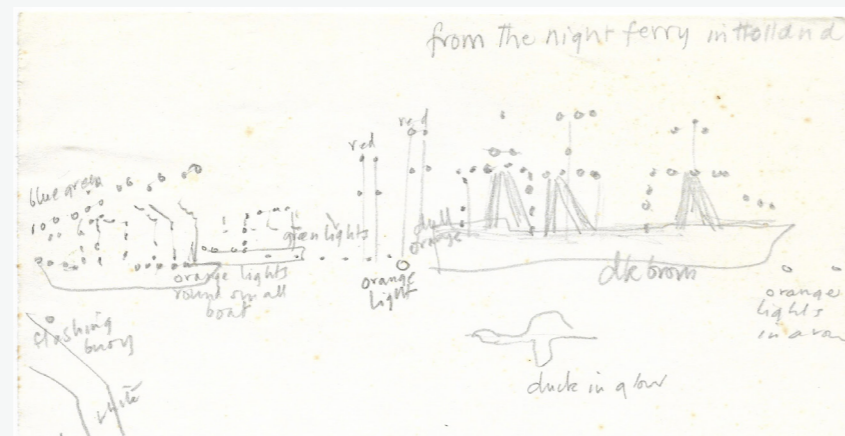 from the night ferry in Holland
red
red
blue green
green lights
dull
orange
orange lights
round small
boat
orange
light
dk brown
orange
lights
in a row
flashing
buoy
white
duck in glow